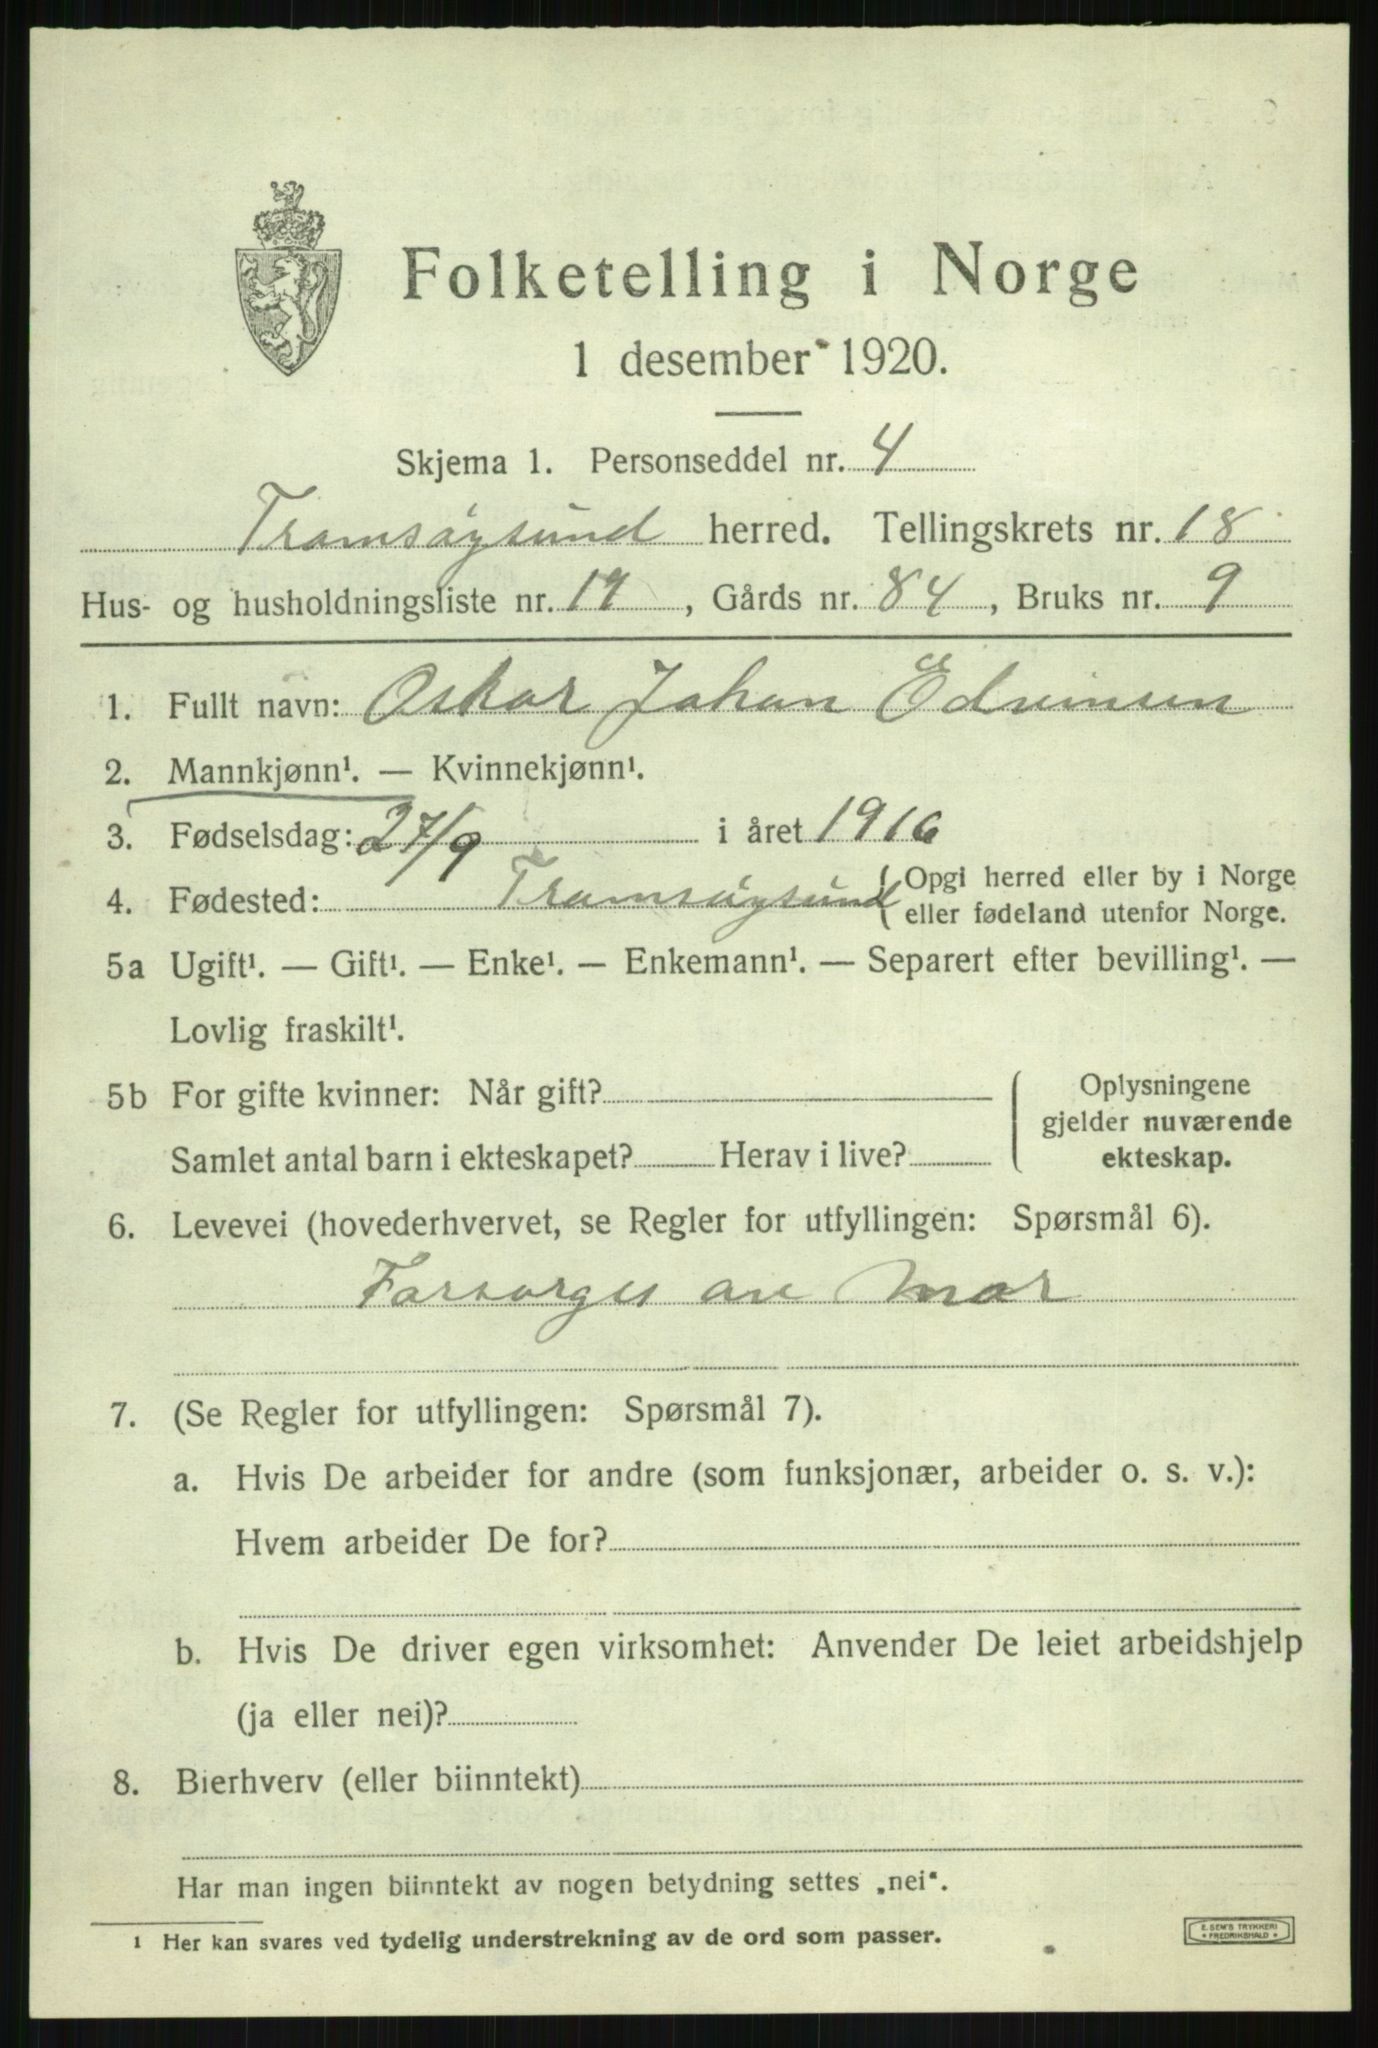 Folketelling i Norge
1 desember 1920.
Skjema 1. Personseddel nr. 4
Tromsøysund herred. Tellingskrets nr. 18
Hus- og husholdningsliste nr. 19, Gårds nr. 84, Bruks nr. 9
1. Fullt navn: Oskar Johan Edvinsen
2. Mannkjønn¹. — Kvinnekjønn¹.
3. Fødselsdag: 27/9 i året 1916
4. Fødested: Tromsøysund { Opgi herred eller by i Norge
eller fødeland utenfor Norge.
5a Ugift¹. — Gift¹. — Enke¹. — Enkemann¹. — Separert efter bevilling¹. —
Lovlig fraskilt¹.
5b For gifte kvinner: Når gift?
Samlet antal barn i ekteskapet? Herav i live?
Oplysningene
gjelder nuværende
ekteskap.
6. Levevei (hovederhvervet, se Regler for utfyllingen: Spørsmål 6).
Forsørges av Mor
7. (Se Regler for utfyllingen: Spørsmål 7).
a. Hvis De arbeider for andre (som funksjonær, arbeider o. s. v.):
Hvem arbeider De for?
b. Hvis De driver egen virksomhet: Anvender De leiet arbeidshjelp
(ja eller nei)?
8. Bierhverv (eller biinntekt)
Har man ingen biinntekt av nogen betydning settes „nei“.
¹ Her kan svares ved tydelig understrekning av de ord som passer.
E. SEM'S TRYKKERI
* FREDRIKSHALD *